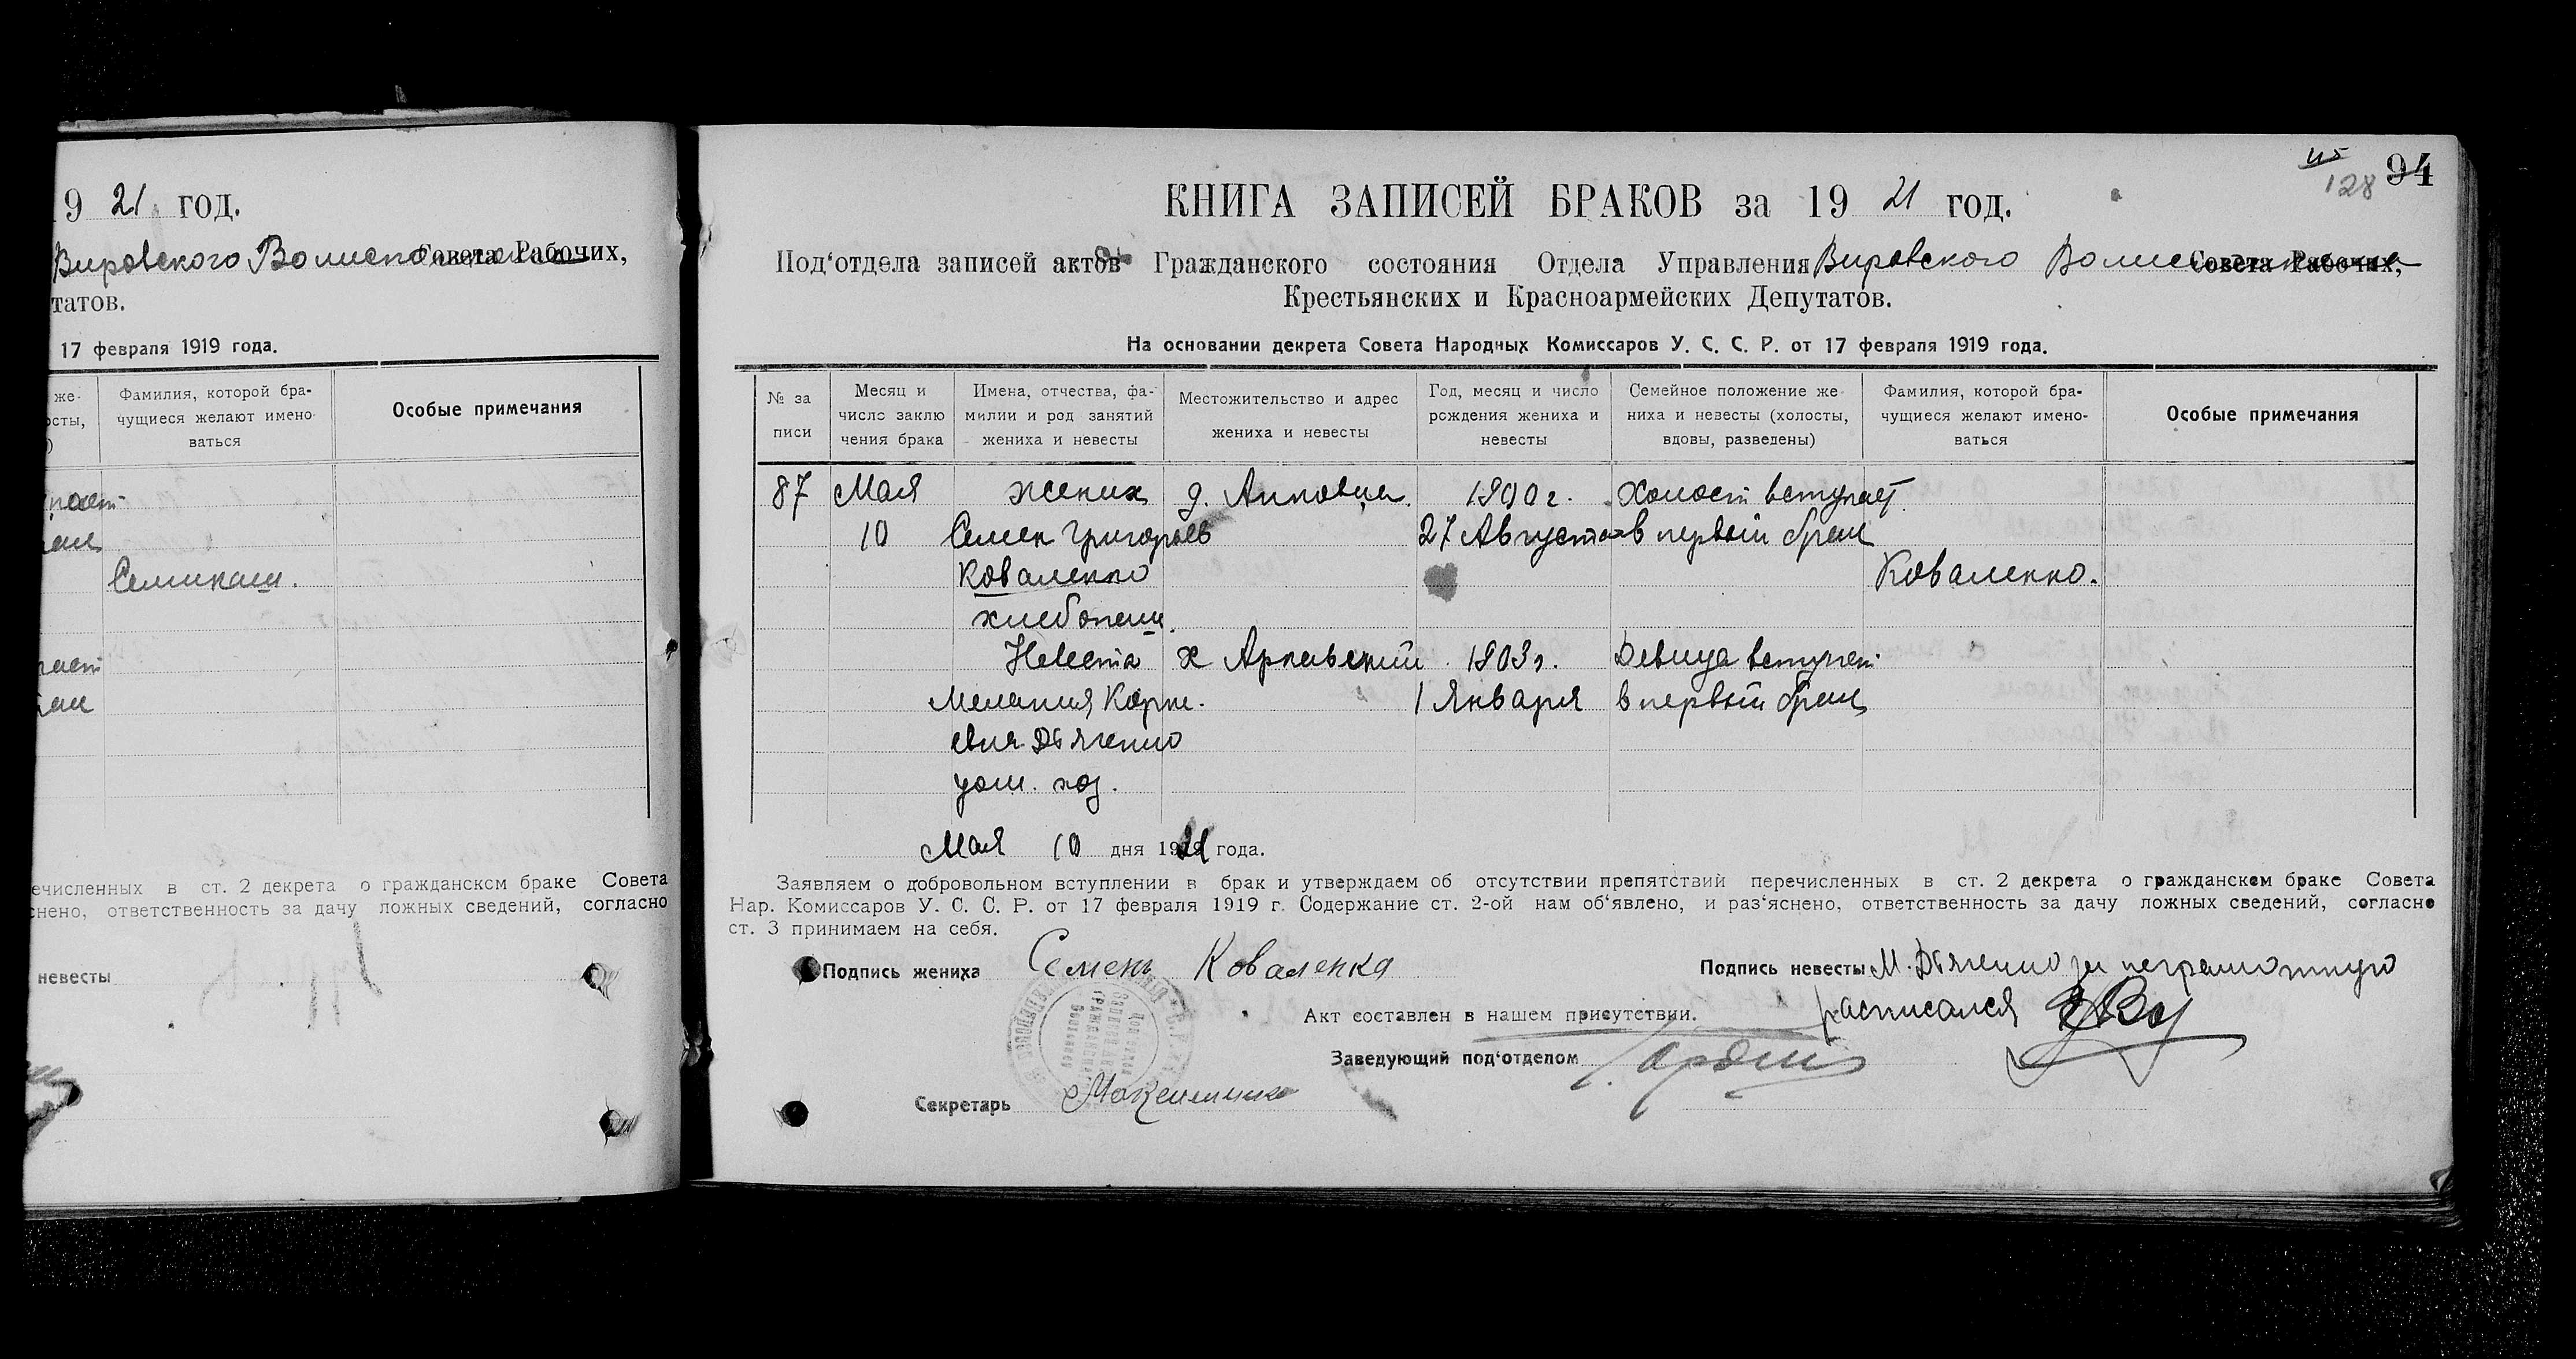 19 21 год.
Вировского Волисполкома Совета Рабочих,
татов.
17 февраля 1919 года.
же-
осты,
)
Фамилия, которой бра-
чущиеся желают имено-
ваться
Особые примечания
Семикаш.
ечисленных в ст. 2 декрета о гражданском браке Совета
снено, ответственность за дачу ложных сведений, согласно
невесты
115
128
94
КНИГА ЗАПИСЕЙ БРАКОВ за 19 21 год.
Под'отдела записей актов Гражданского состояния Отдела Управления Вировского Волисполкома Совета Рабочих,
Крестьянских и Красноармейских Депутатов.
На основании декрета Совета Народных Комиссаров У. С. С. Р. от 17 февраля 1919 года.
№ за
писи
Месяц и
число заклю
чения брака
Имена, отчества, фа-
милии и род занятий
жениха и невесты
Местожительство и адрес
жениха и невесты
Год, месяц и число
рождения жениха и
невесты
Семейное положение же-
ниха и невесты (холосты,
вдовы, разведены)
Фамилия, которой бра-
чущиеся желают имено-
ваться
Особые примечания
87 Мая жених д. 1890 г. Холост вступает
10 Семен Григорьев 27 Августа в первый брак
Коваленко Коваленко.
хлебопаш.
Невеста х 1903 г. Девица вступает
Мелания Корне- 1 Января в первый брак
евна Дьяченко
дом. хоз.
Мая 10 дня 1921 года.
Заявляем о добровольном вступлении в брак и утверждаем об отсутствии препятствий перечисленных в ст. 2 декрета о гражданском браке Совета
Нар. Комиссаров У. С. С. Р. от 17 февраля 1919 г. Содержание ст. 2-ой нам об'явлено, и раз'яснено, ответственность за дачу ложных сведений, согласно
ст. 3 принимаем на себя.
Подпись жениха Семенъ Коваленка
Подпись невесты М. Дьяченко за неграмотную
расписался
Акт составлен в нашем присутствии.
Заведующий под'отделом
Секретарь